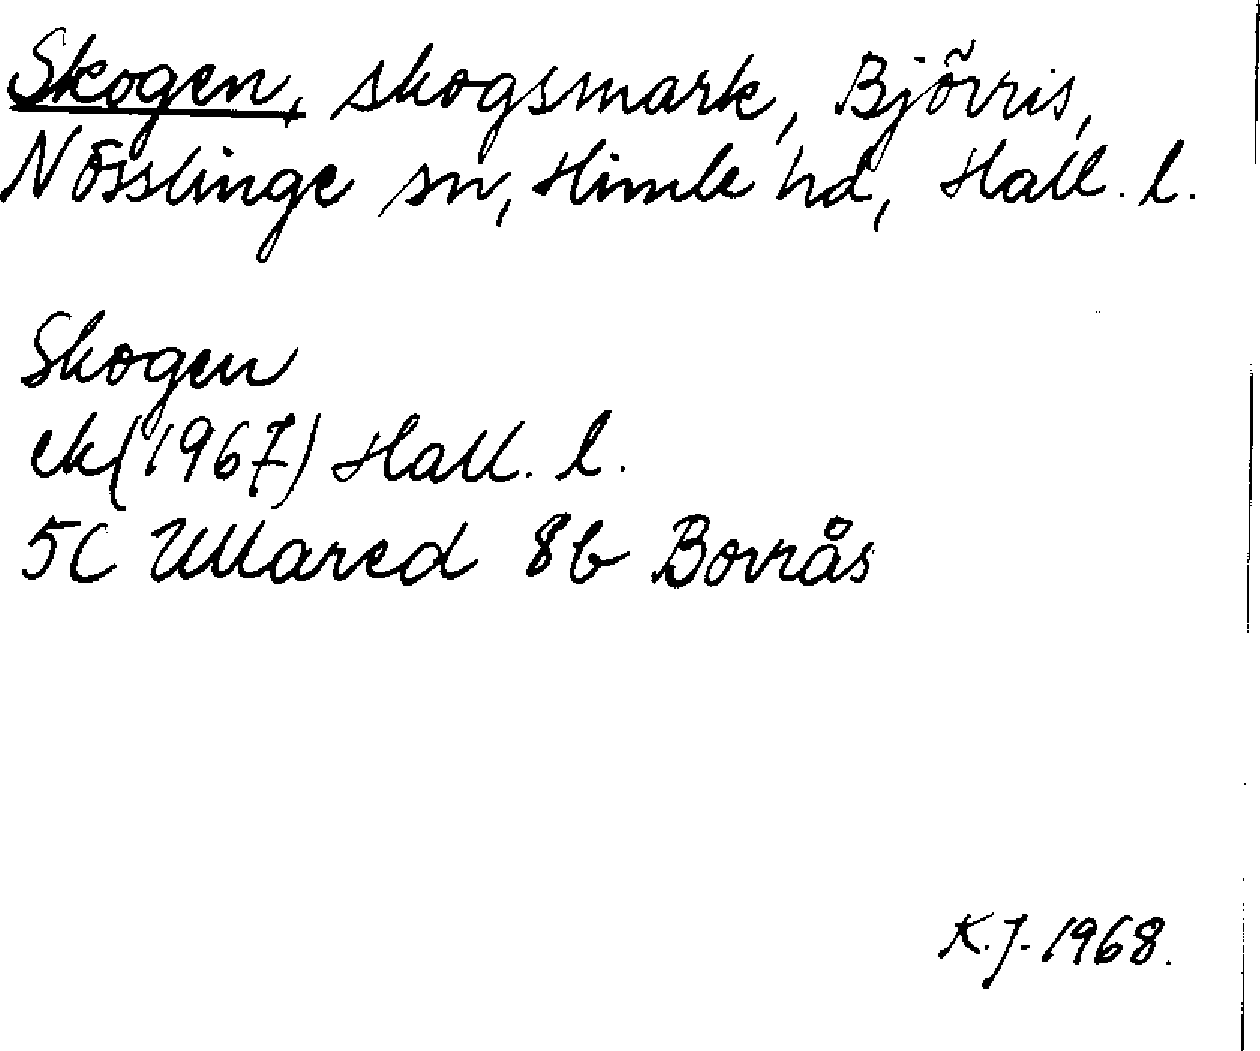 Skogen, skogsmark, Björris,
Nösslinge sn, Himle hd, Hall. l.
Skogen
ek (1967) Hall. l.
5C Ullared 8b Borrås
K.J. 1968.